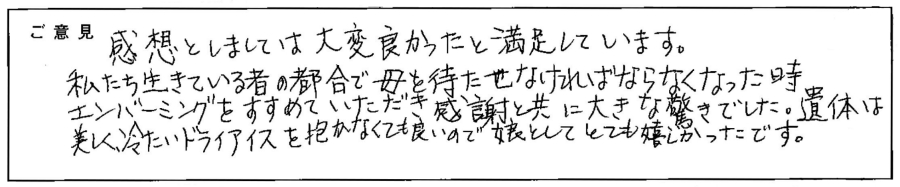 ご意見
感想としましては大変良かったと満足しています。
私たち生きている者の都合で母を待たせなければならなくなった時
エンバーミングをすすめていただき感謝と共に大きな驚きでした。遺体は
美しく、冷たいドライアイスを抱かなくても良いので娘としてとても嬉しかったです。